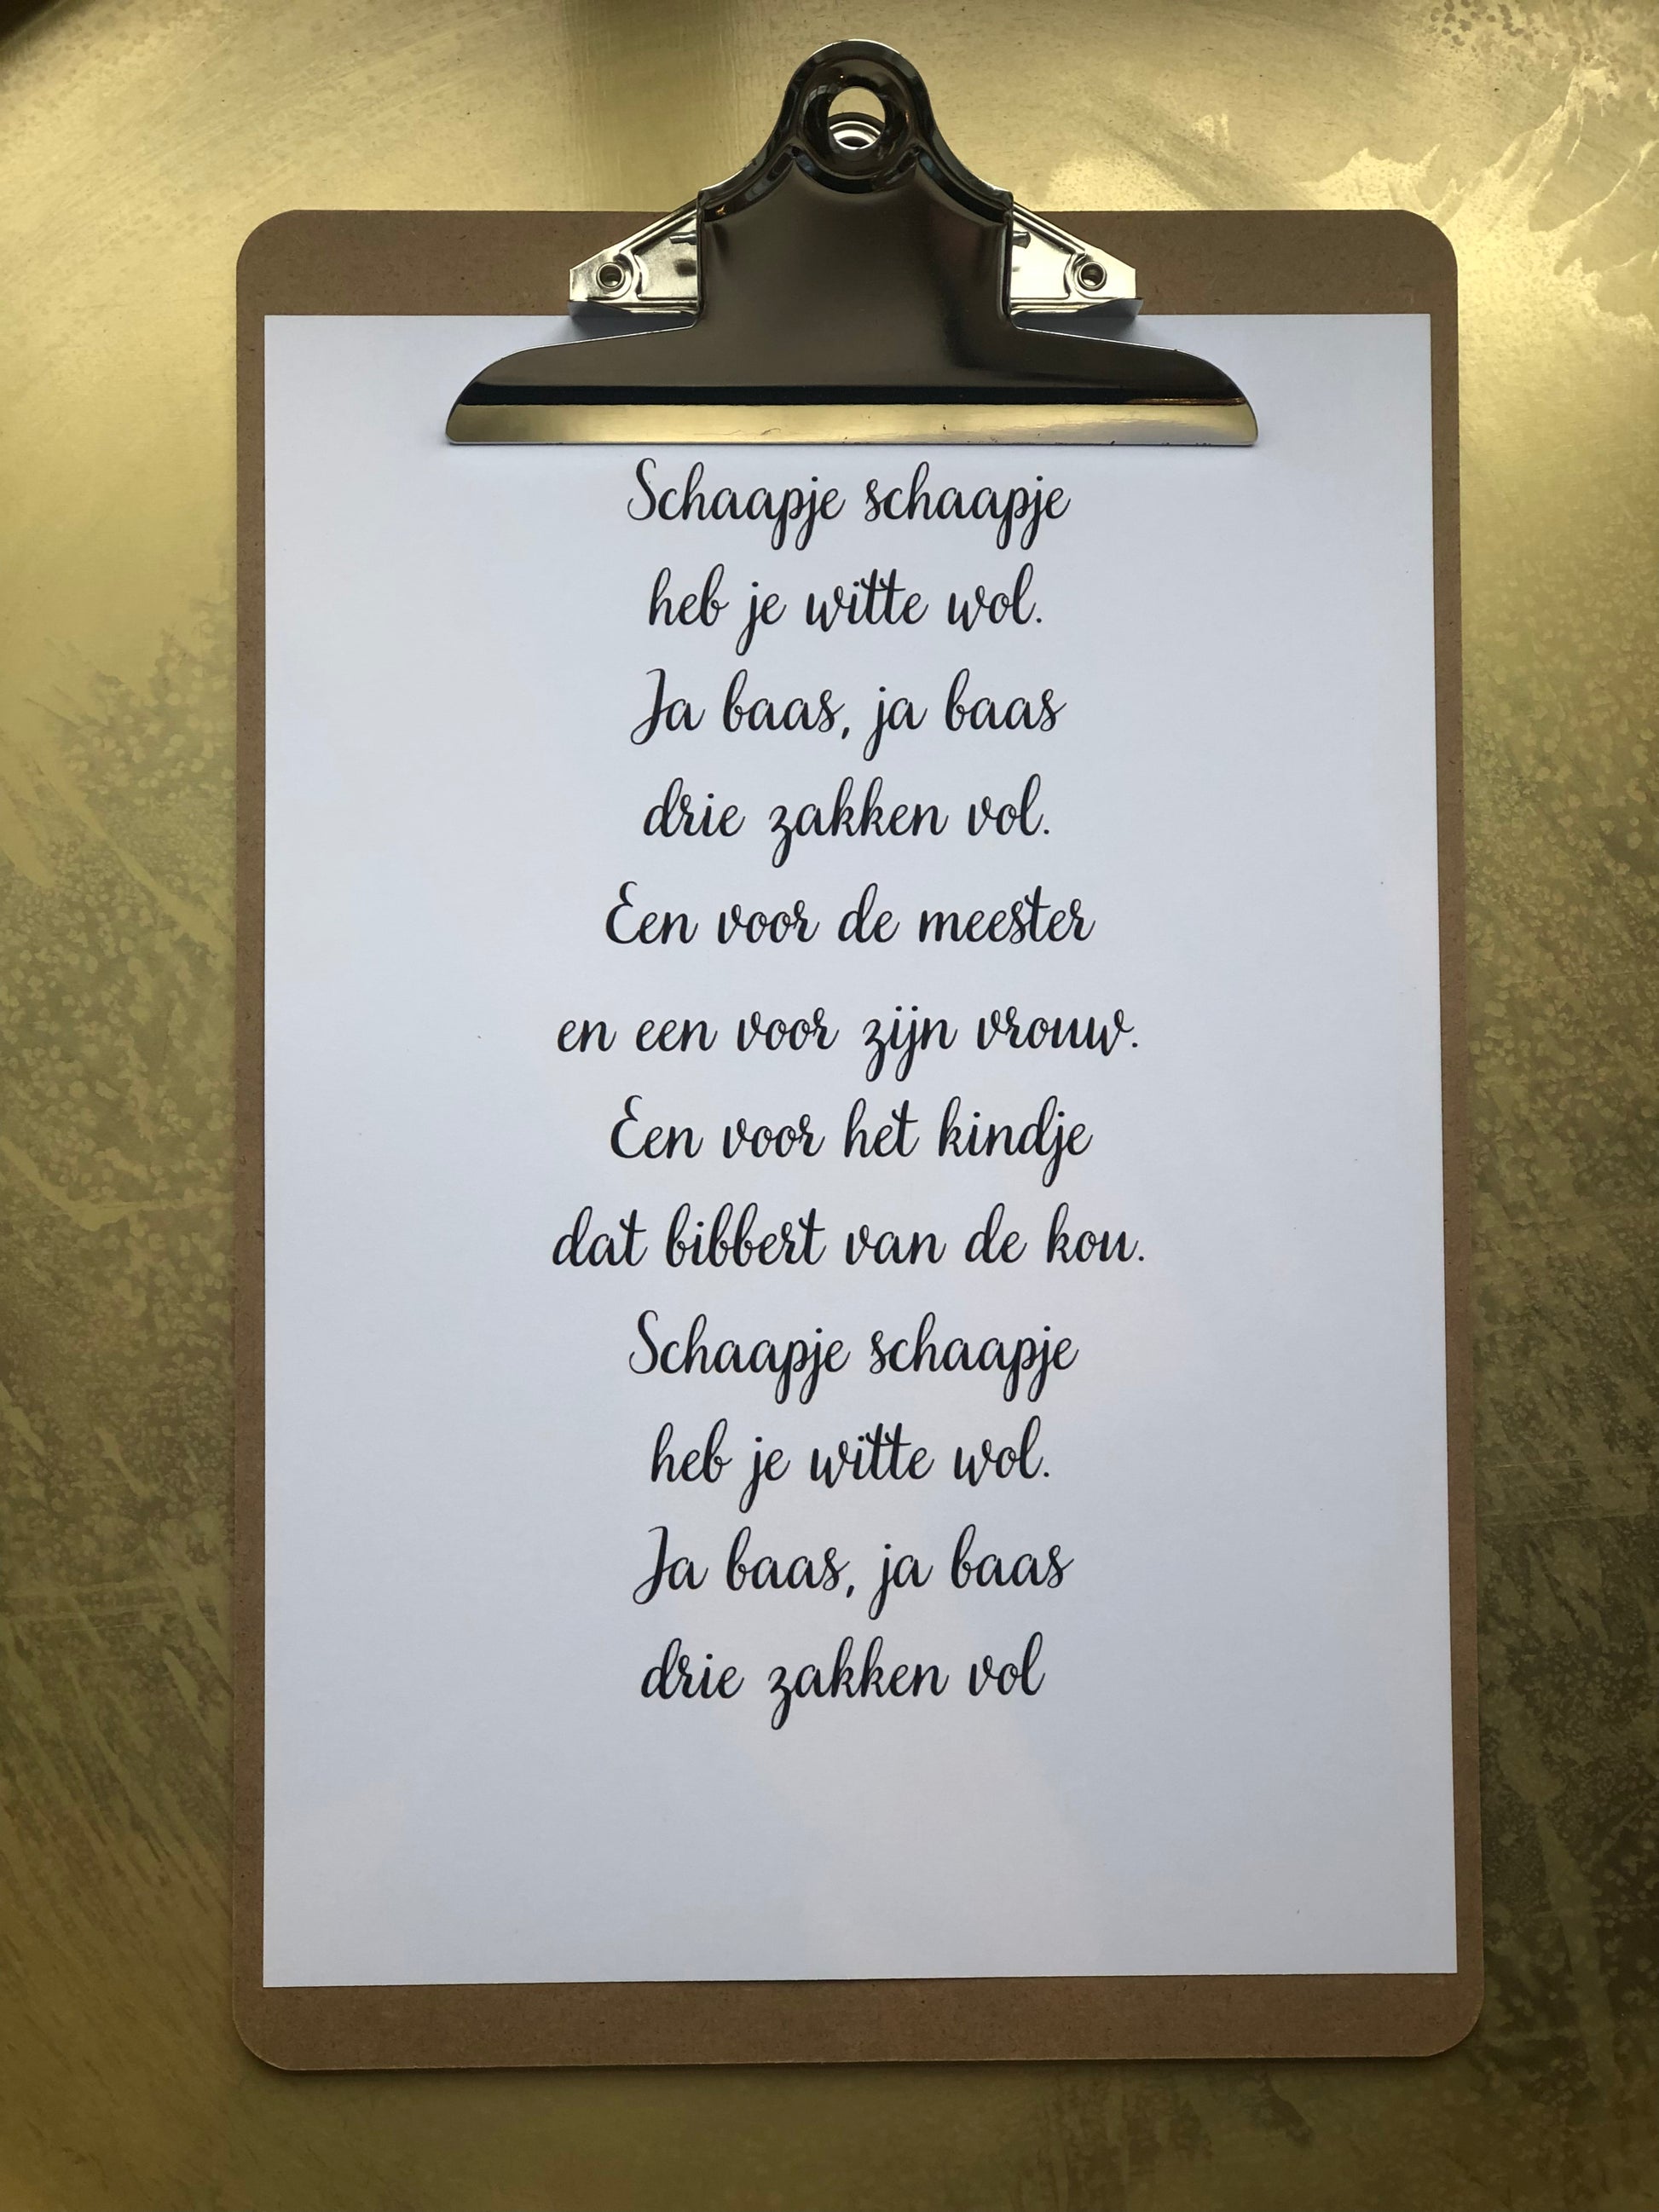 Schaapje schaapje
heb je witte wol.
Ja baas, ja baas
drie zakken vol.
Een voor de meester
en een voor zijn vrouw.
Een voor het kindje
dat bibbert van de kou.
Schaapje schaapje
heb je witte wol.
Ja baas, ja baas
drie zakken vol